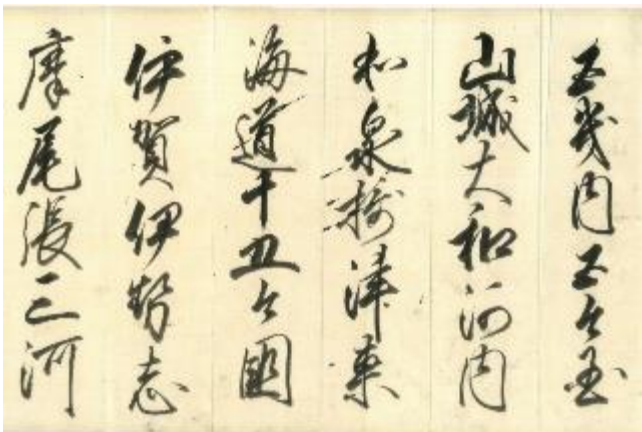 五畿内五ケ国
山城大和河内
和泉摂津東
海道十五ケ国
伊賀伊勢志
摩尾張三河